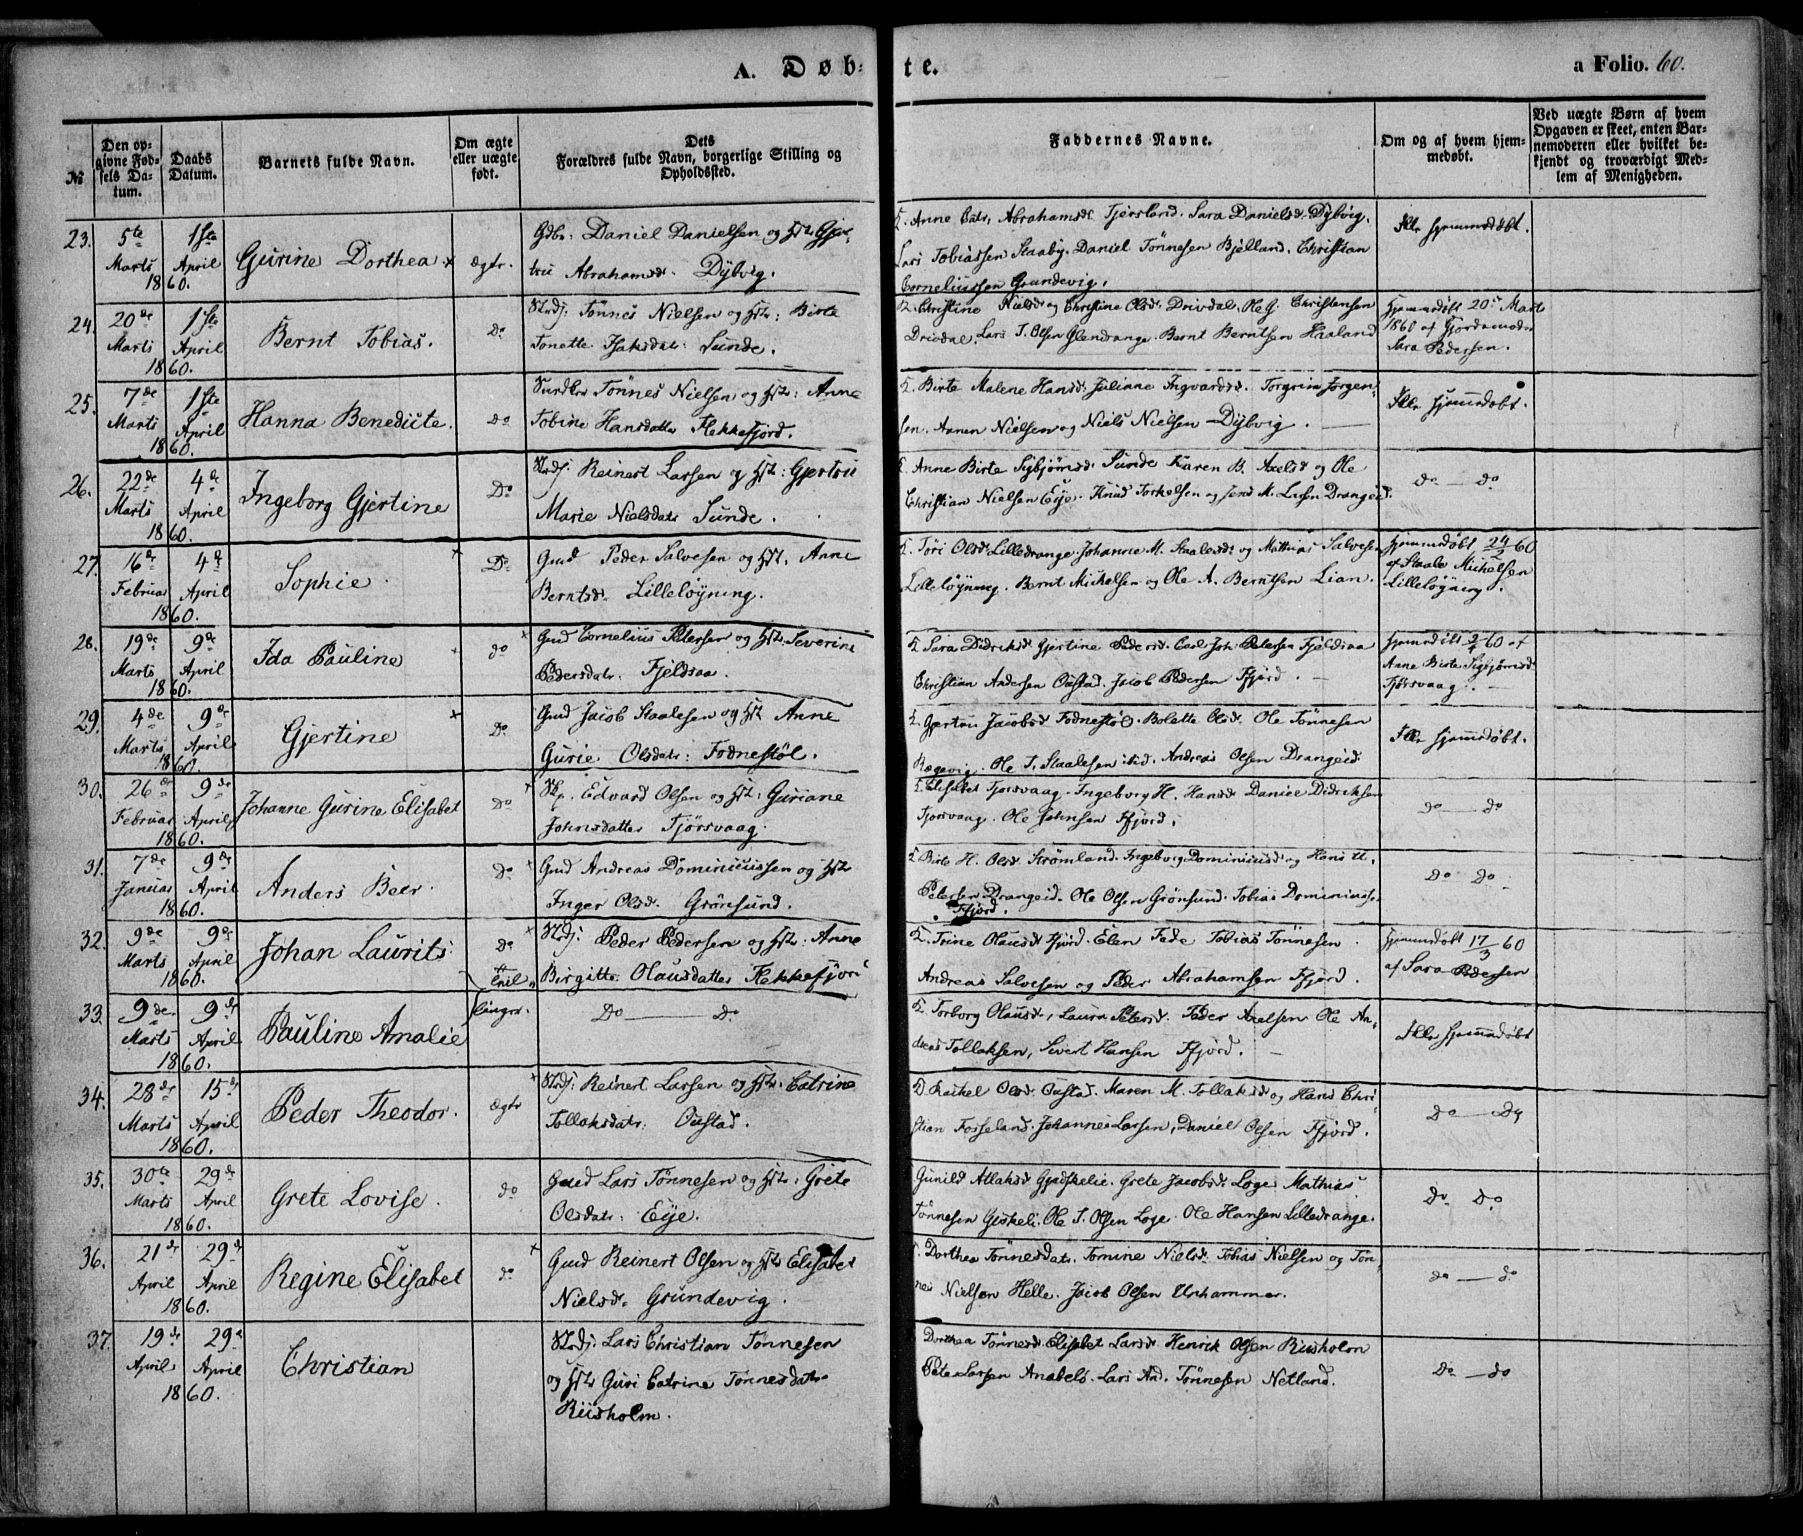 A. Døbte.
a Folio. 60.
№
Den opgivne Fødsels Datum.
Daabs Datum.
Barnets fulde Navn.
Om ægte eller uægte født.
Dets Forældres fulde Navn, borgerlige Stilling og Opholdssted.
Faddernes Navne.
Om og af hvem hjemmedøbt.
Ved uægte Børn af hvem Opgaven er skeet, enten Barnemoderen eller hvilket bekjendt og troværdigt Medlem af Menigheden.
23. 5te Marts 1860. 1ste April Gurine Dorthea ægte.
Gdbr: Daniel Danielsen og Hst: Gjer-
tru Abrahamsd. Dÿbvig.
Anne Catr. Abrahamsd. Tjørsland. Sara Danielsd. Dÿbvig.
Lars Tobiassen Staaby. Daniel Tönnesen Bjelland. Christian
Corneliussen Grundevig.
Ikke hjemmedøbt.
24. 20de Marts 1860. 1ste April Bernt Tobias. Do
Strdj: Tönnes Nielsen og Hst: Birte
Tonette Isaksdatr. Sunde.
Christine Nielsd og Christine Olsd. Drivdal. Ole G. Christensen
Drivdal. Lars T. Olsen Glendrange. Bernt Berntsen Haaland
Hjemmedøbt 20de Marts
1860 af Gjordemoder
Sara Pedersen.
25. 7de Marts 1860. 1ste April Hanna Benedicte. Do
Tönnes Nielsen og Hst: Anne
Tobine Hansdatter Flekkefjord.
Birte Malene Hansd. Juliane Ingvardsd. Torgrim Jørgen-
sen. Aanen Nielsen og Niels Nielsen Dÿbvig.
Ikke hjemmedøbt.
26. 22de Marts 1860. 4de April Ingeborg Gjertine Do
Strdj: Reinert Larsen og Hst: Gjertru
Marie Nielsdatr Sunde.
Anne Birte Sigbjørnsd. Sunde Karen B. Axelsd og Ole
Christian Nielsen Eije. Knud Torkelsen og Jens M. Larsen Drangeid.
Do — Do
27. 16de Februar 1860. 4de April Sophie. Do
Gmd Peder Salvesen og Hst. Anne
Berntsd. Lilleløyning.
Töri Olsd Lilledrange. Johanne M. Staalesd. og Mathias Salvesen
Lilleløyning. Bernt Michelsen og Ole A. Berntsen Lian.
Hjemmedøbt 24/2 60
af Staale Michelsen
Lilleløyning.
28. 19de Marts 1860. 9de April Ida Pauline do
Gmd Cornelius Petersen og Hst. Severine
Pedersdatr. Fjeldsaa.
Sara Didriksd. Gjertine Pedersd. Carl Joh. Petersen Fjeldsaa
Christian Andersen Oustad. Jacob Pedersen Ffjord.
Hjemmedøbt 2/4 60 af
Anne Birte Sigbjørnsd
Tjørsvaag.
29. 4de Marts 1860. 9de April Gjertine Do
Gmd Jacob Staalesen og Hst Anne
Gurie Olsdatr: Fodnestöl.
Gjertru Jacobsd Fodnestöl. Bolette Olsd. Ole Tönnesen
Rægevig. Ole T. Staalesen ibid. Andreas Olsen Drangeid.
Ikke hjemmedøbt.
30. 26de Februar 1860. 9de April Johanne Gurine Elisabet Do
Edvard Olsen og Hst: Guriane
Johnsdatter Tjörsvaag.
Elisabet Tjorsvaag. Ingeborg H. Hansd Daniel Didriksen
Tjorsvaag. Ole Johnsen Ffjord.
do — do
31. 7de Januar 1860. 9de April Anders Beer. Do
Gmd Andreas Dominicussen og Hst
Inger Olsd. Grönsund.
Birte H. Olsd. Strømland. Ingeborg Dominicusd og Hans H.
Petersen Drangeid. Ole Olsen Grönsund. Tobias Dominicussen
Ffjord.
Do Do
32. 9de Marts 1860. 9de April Johan Laurits do
Strdj: Peder Pedersen og Hst: Anne
Birgitte Olausdatter Flekkefjord
Trine Olausd. Ffjord. Elen Fede Tobias Tönnesen
Andreas Salvesen og Peder Abrahamsen Ffjord.
Hjemmedøbt 17/3 60
af Sara Pedersen
33. 9de Marts 1860. 9de April Pauline Amalie
Tvillinger.
Do — Do
Torborg Olausd, Laura Petersd. Peder Axelsen Ole An-
dreas Tollaksen, Sivert Hansen Ffjord.
Ikke hjemmedøbt
34. 28de Marts 1860. 15de April Peder Theodor. ægte
Strdj: Reinert Larsen og Hst. Catrine
Tollaksdatr: Oustad.
Rachel Olsd. Oustad. Maren M. Tollaksd og Hans Chri-
stian Fosseland. Johannes Larsen, Daniel Olsen Ffjord.
Do — Do
35. 30te Marts 1860. 29de April Grete Lovise. do
Gmd Lars Tönnesen og Hst: Grete
Olsdatr: Eije.
Gunild Atlaksd Gjedskelie. Grete Jacobsd Loge. Mathias
Tönnesen Giskeli. Ole S. Olsen Loge. Ole Hansen Lilledrange.
Do Do
36. 21de April 1860. 29de April Regine Elisabet do
Gmd Reinert Olsen og Hst Elisabet
Nielsd. Grundevig.
Dorthea Tönnesdatr. Tomine Nielsd. Tobias Nielsen og Tön-
nes Nielsen Helle. Jacob Olsen Urhammer.
do — do
37. 19de April 1860. 29de April Christian
Strdj: Lars Christian Tönnesen
og Hst Guri Catrine Tönnesdatr
Riisholm.
Dorthea Tönnesd. Elisabet Larsd. Henrik Olsen Riisholm
Peter Larsen Anabels. Lars And. Tönnesen Netland.
Do — do